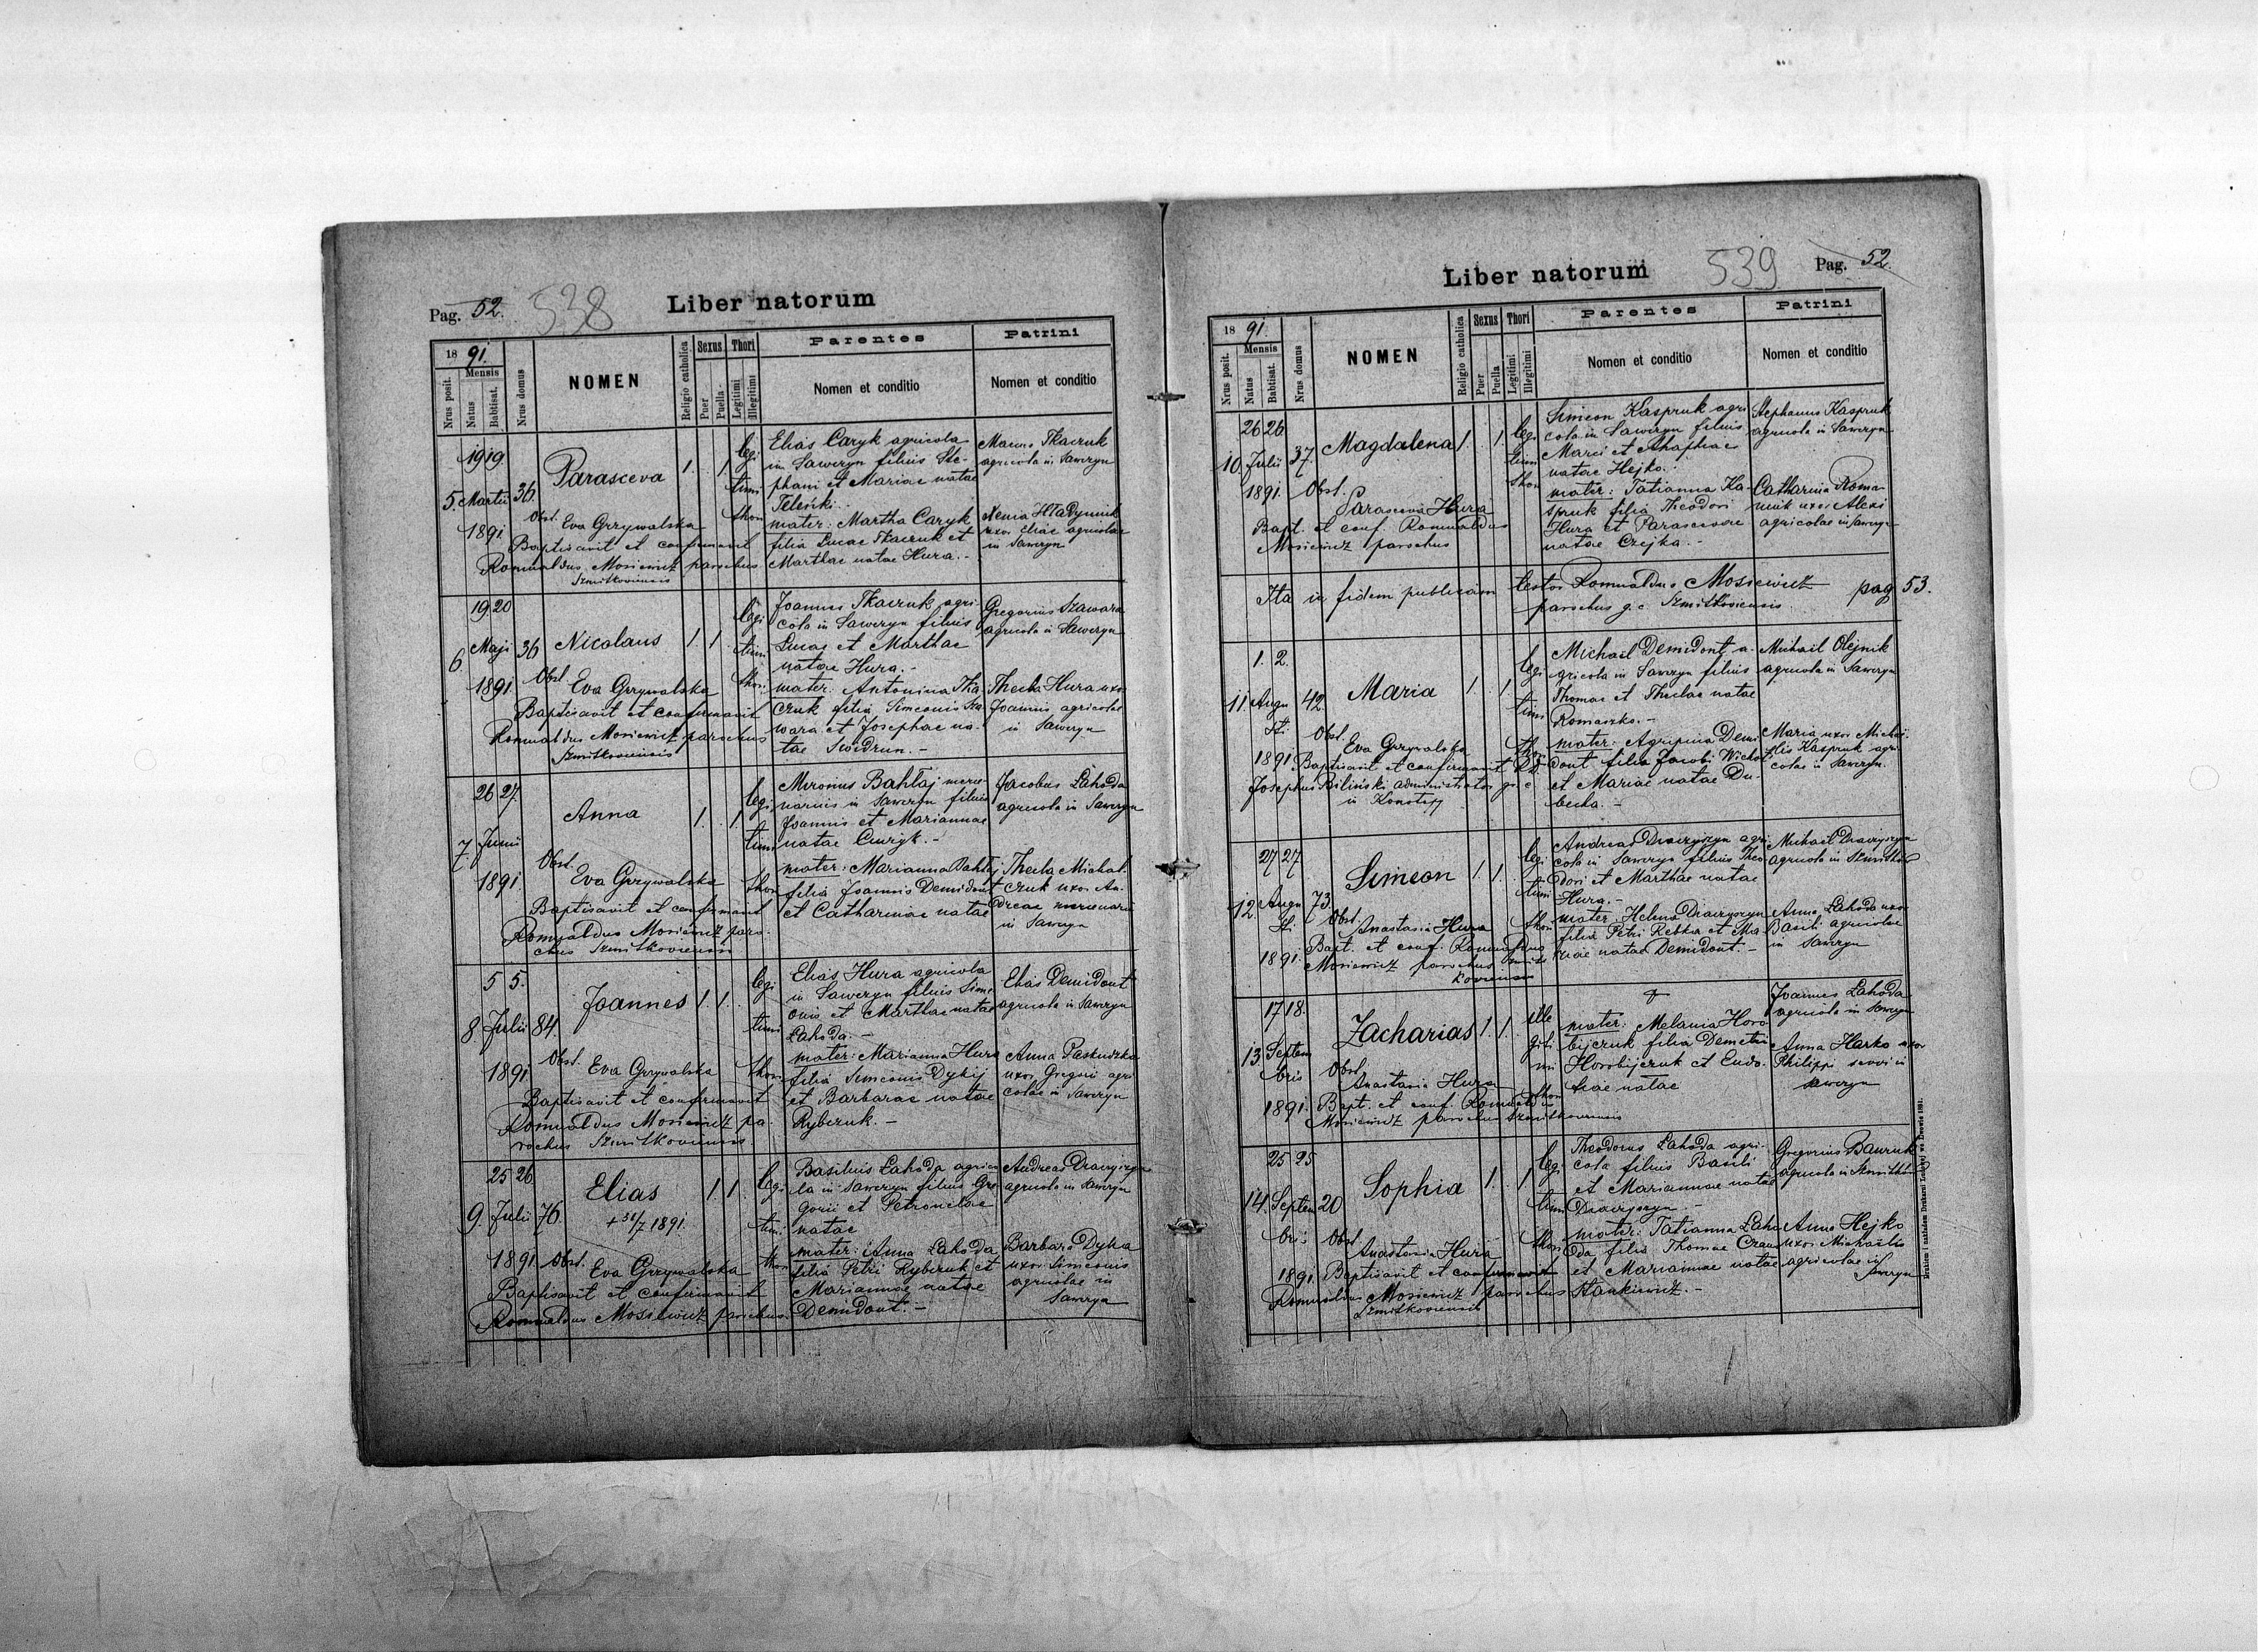 Pag. 52. 538 Liber natorum
1891.
Nrus posit.
Mensis
Natus
Babtisat.
Nrus domus
NOMEN
Religio catholica
Sexus
Puer
Puella
Thori
Legitimi
Illegitimi
Parentes
Nomen et conditio
Patrini
Nomen et conditio
5.
19 19
Martii
1891
36
Parasceva
1. 1
legi
timi
thori
Obst. Eva Grzywalska
Baptisavit et confirmavit
Romualdus Mosiewicz parochus
Szmitkoviensis
Elias Caryk agricola
in Sawczyn filius Ste-
phani et Mariae natae
Teleńki.
mater: Martha Caryk
filia Lucae Tkaczuk et
Marthae natae Hura. -
Marcus Tkaczuk
agricola in Sawczyn
Xenia Hładynnik
uxor Eliae agricolae
in Sawczyn
6
19 20
Maji
1891
36
Nicolaus
1. 1
legi
timi
thori
Obst. Eva Grzywalska
Baptisavit et confirmavit
Romualdus Mosiewicz parochus
Szmitkoviensis
Joannes Tkaczuk agri-
cola in Sawczyn filius
Lucae et Marthae
natae Hura. -
mater: Antonina Tka
czuk filia Simeonis Sza-
wara et Josephae na-
tae Swidrun. -
Gregorius Szawara
agricola in Sawczyn
Thecla Hura uxor
Joannis agricolae
in Sawczyn
7
26 27.
Junii
1891
Anna
1. 1
legi
timi
thori
Obst. Eva Grzywalska
Baptisavit et confirmavit
Romualdus Mosiewicz paro-
chus Szmitkoviensis
Mironus Bahłaj merce-
narius in Sawczyn filius
Joannis et Mariannae
natae Curyk. -
mater: Marianna Bahłaj
filia Joannis Demidont
et Catharinae natae
Jacobus Lahoda
agricola in Sawczyn
Thecla Michal-
czuk uxor An-
dreae mercenarii
in Sawczyn
8.
5 5.
Julii
1891
84.
Joannes
1. 1.
legi
timi
thori
Obst. Eva Grzywalska
Baptisavit et confirmavit
Romualdus Mosiewicz pa-
rochus Szmitkoviensis
Elias Hura agricola
in Sawczyn filius Sime
onis et Marthae natae
Lahoda. -
mater: Marianna Hura
filia Simeonis Dykij
et Barbarae natae
Rybczuk. -
Elias Demidont
agricola in Sawczyn
Anna Paskudzka
uxor Gregorii agri
colae in Sawczyn
9.
25 26
Julii
1891
76.
Elias
+ 31/7 1891.
1. 1.
legi
timi
thori
Obst. Eva Grzywalska
Baptisavit et confirmavit
Romualdus Mosiewicz parochus.
Basilius Lahoda agrico
la in Sawczyn filius Gre
gorii et Petronelae
natae
mater: Anna Lahoda
filia Petri Rybczuk et
Mariannae natae
Demidont. -
Andreas Draczyszyn
agricola in Sawczyn
Barbara Dyka
uxor Simeonis
agricolae in
Sawczyn
Liber natorum 539 Pag. 52.
1891.
Nrus posit.
Mensis
Natus
Babtisat.
Nrus domus
NOMEN
Religio catholica
Sexus
Puer
Puella
Thori
Legitimi
Illegitimi
Parentes
Nomen et conditio
Patrini
Nomen et conditio
10.
26 26
Julii
1891.
37.
Magdalena
1. 1.
legi
timi
thori
Obst. Parasceva Hura
Bapt. et conf. Romualdus
Mosiewicz parochus
Simeon Kaspruk agri
cola in Sawczyn filius
Marci et Ahaphiae
natae Hejko.
mater: Tatianna Ka-
spruk filia Theodori
Hura et Parascevae
natae Czejka. -
Stephanus Kaspruk
agricola in Sawczyn
Catharina Roma-
niuk uxor Alexi
agricolae in Sawczyn
Ita in fidem publicam testor Romualdus Mosiewicz pag 53.
parochus g. c. Szmitkoviensis
11.
1. 2.
Augu
sti
1891
42.
Maria
1. 1
legi
timi
thori
Obst. Eva Grzywalska
Baptisavit et confirmavit
Josephus Biliński administrator g. c.
in Konotopy
Michael Demidont a-
gricola in Sawczyn filius
Thomae et Theclae natae
Romaszko. -
mater: Agripina Demi
dont filia Jacobi Wichot
et Mariae natae Du-
becka. -
Michael Olejnik
agricola in Sawczyn
Maria uxor Michae-
lis Kaspruk agri-
colae in Sawczyn.
12.
27 27
Augu
sti
1891.
73.
Simeon
1. 1.
legi
timi
thori
Obst. Anastasia Hura
Bapt. et conf. Romualdus
Mosiewicz parochus Szmit
koviensis
Andreas Draczyszyn agri
cola in Sawczyn filius Theo
dori et Marthae natae
Hura. -
mater: Helena Draczyszyn
filia Petri Rebka et Ma
riae natae Demidont. -
Michael Draczyszyn
agricola in Szmitków
Anna Lahoda uxor
Basili agricolae
in Sawczyn
13.
17 18.
Septem
bris
1891.
Zacharias
1. 1.
ille
giti
mi
thori
Obst. Anastasia Hura
Bapt. et conf. Romualdus
Mosiewicz parochus Szmitkoviensis
mater: Melania Horo-
bijczuk filia Demetrii
Horobijczuk et Eudo-
kiae natae
Joannes Lahoda
agricola in Sawczyn
Anna Harko uxor
Philippi servi in
Sawczyn
14.
25 25
Septem
bris
1891.
20
Sophia
1. 1
legi
timi
thori
Obst. Anastasia Hura
Baptisavit et confirmavit
Romualdus Mosiewicz parochus
Szmitkoviensis
Theodorus Lahoda agri-
cola filius Basili
et Mariannae natae
Draczyszyn. -
mater: Tatianna Laho
da filia Thomae Czau
et Mariannae natae
Stankiewicz. -
Gregorius Bauruk
agricola in Szmitków
Anna Hejko
uxor Michaelis
agricolae in
Sawczyn